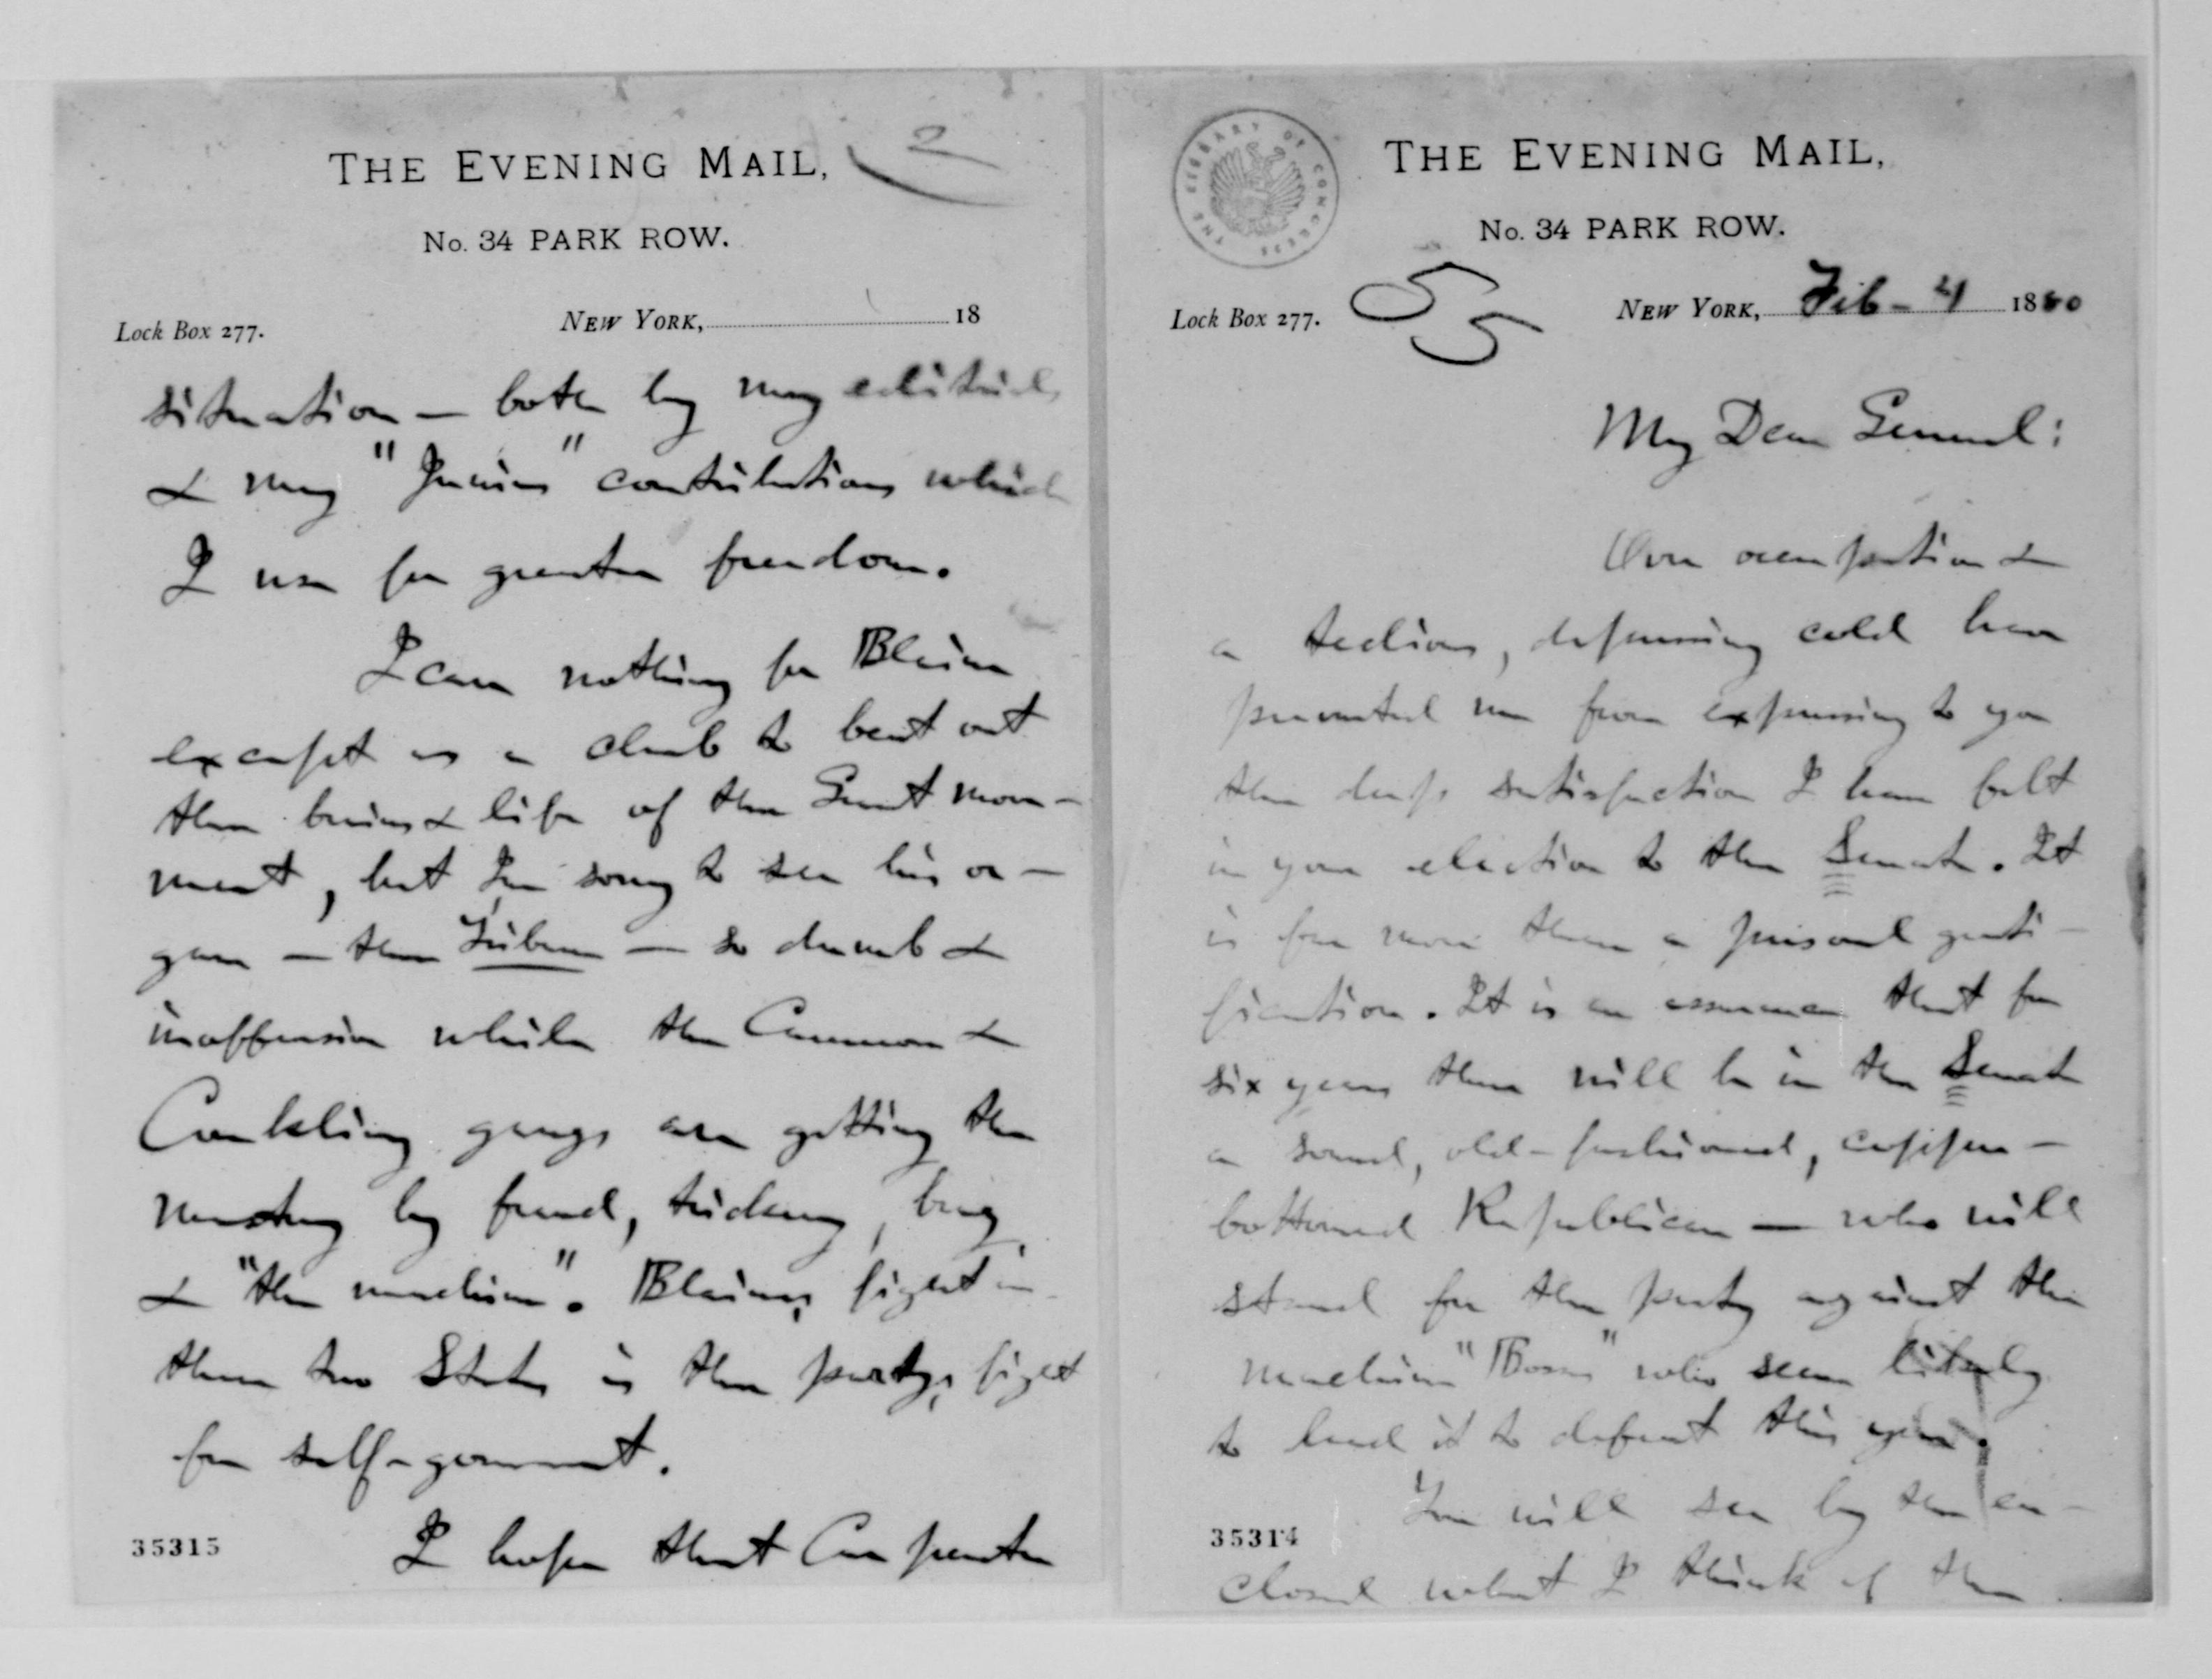 THE EVENING MAIL,
No. 34 PARK ROW.
THE LIBRARY OF CONGRESS
55
Lock Box 277.
NEW YORK, Feb - 4 1880
My Dear General:
Over occupation &
a tedious, depressing cold have
prevented me from expressing to you
the deep satisfaction I have felt
in your election to the Senate. It
is far more than a personal grati-
fication. It is an assurance that for
six years there will be in the Senate
a sound, old-fashioned, copper-
bottomed Republican — who will
stand for the party against the
machine "Bosses" who seem likely
to lead it to defeat this year.
You will see by the en-
35314
closed what I think of the
THE EVENING MAIL,
2
No. 34 PARK ROW.
Lock Box 277.
NEW YORK, 18
situation — both by my editorials
& my "Junius" contributions which
I use for greater freedom.
I care nothing for Blaine
except as a club to beat out
the brains & life of the Grant move-
ment, but I'm sorry to see his or-
gan — the Tribune — so dumb &
inoffensive while the Cameron &
Conkling gangs are getting the
mastery by fraud, trickery, brag
& "the machine". Blaine's fight in
these two States is the party's fight
for self-government.
35315
I hope that Carpenter